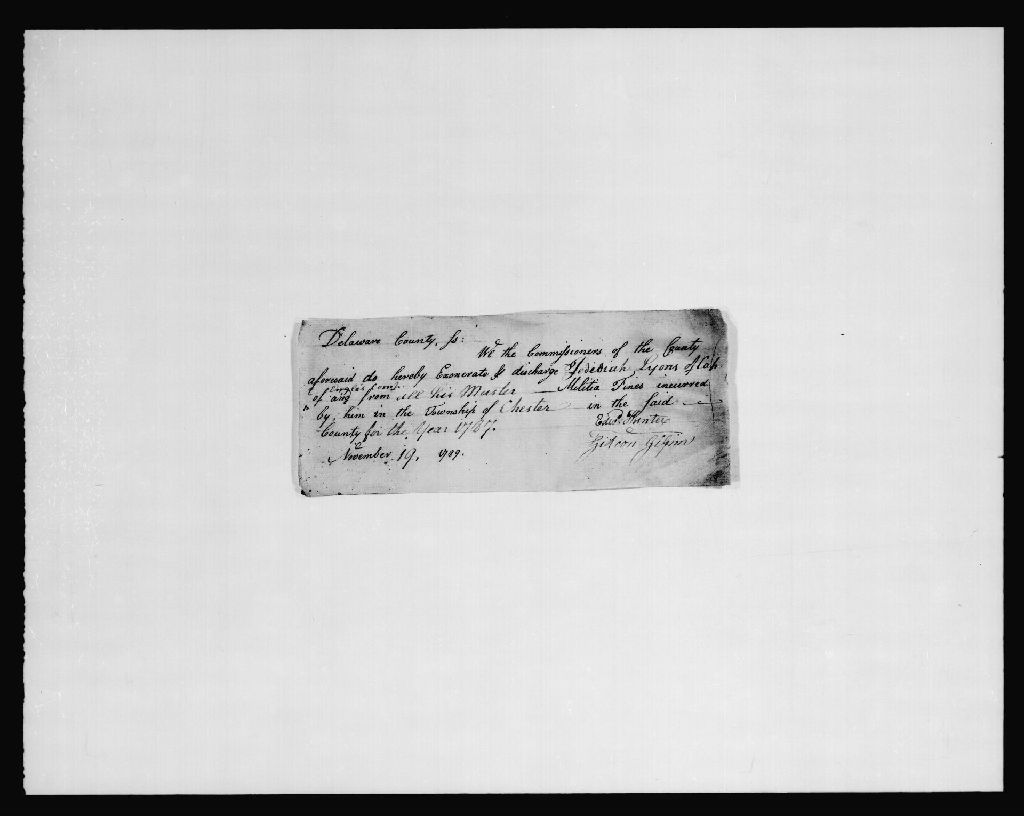 Delaware County, Ss:
We the Commissioners of the County
aforesaid do hereby Exonerate & discharge Lyons of Cap
of and from all his Muster — Militia Fines incurred
by him in the Township of Chester in the said
County for the Year 1787.
November 19, 1789. Edwd. Hunter
Gideon Gilpin